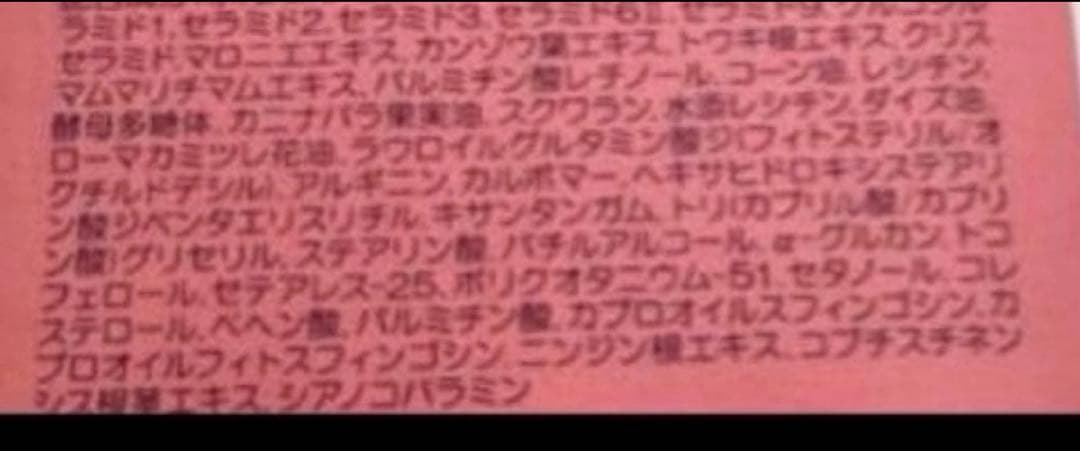 ラミド1、セラミド2、セラミド3、セラミド6II、セラミド9、
セラミド、マロニエエキス、カンゾウ葉エキス、トウキ根エキス、クリス
マムマリチマムエキス、パルミチン酸レチノール、コーン油、レシチン、
酵母多糖体、カニナバラ果実油、スクワラン、水添レシチン、ダイズ油、
ローマカミツレ花油、ラウロイルグルタミン酸ジ(フィトステリル/オ
クチルドデシル)、アルギニン、カルボマー、ヘキサヒドロキシステアリ
ン酸ジペンタエリスリチル、キサンタンガム、トリ(カプリル酸/カプリ
ン酸)グリセリル、ステアリン酸、バチルアルコール、α-グルカン、トコ
フェロール、セテアレス-25、ポリクオタニウム-51、セタノール、コレ
ステロール、ベヘン酸、パルミチン酸、カプロオイルスフィンゴシン、カ
プロオイルフィトスフィンゴシン、ニンジン根エキス、コプチスチネン
シス根茎エキス、シアノコバラミン